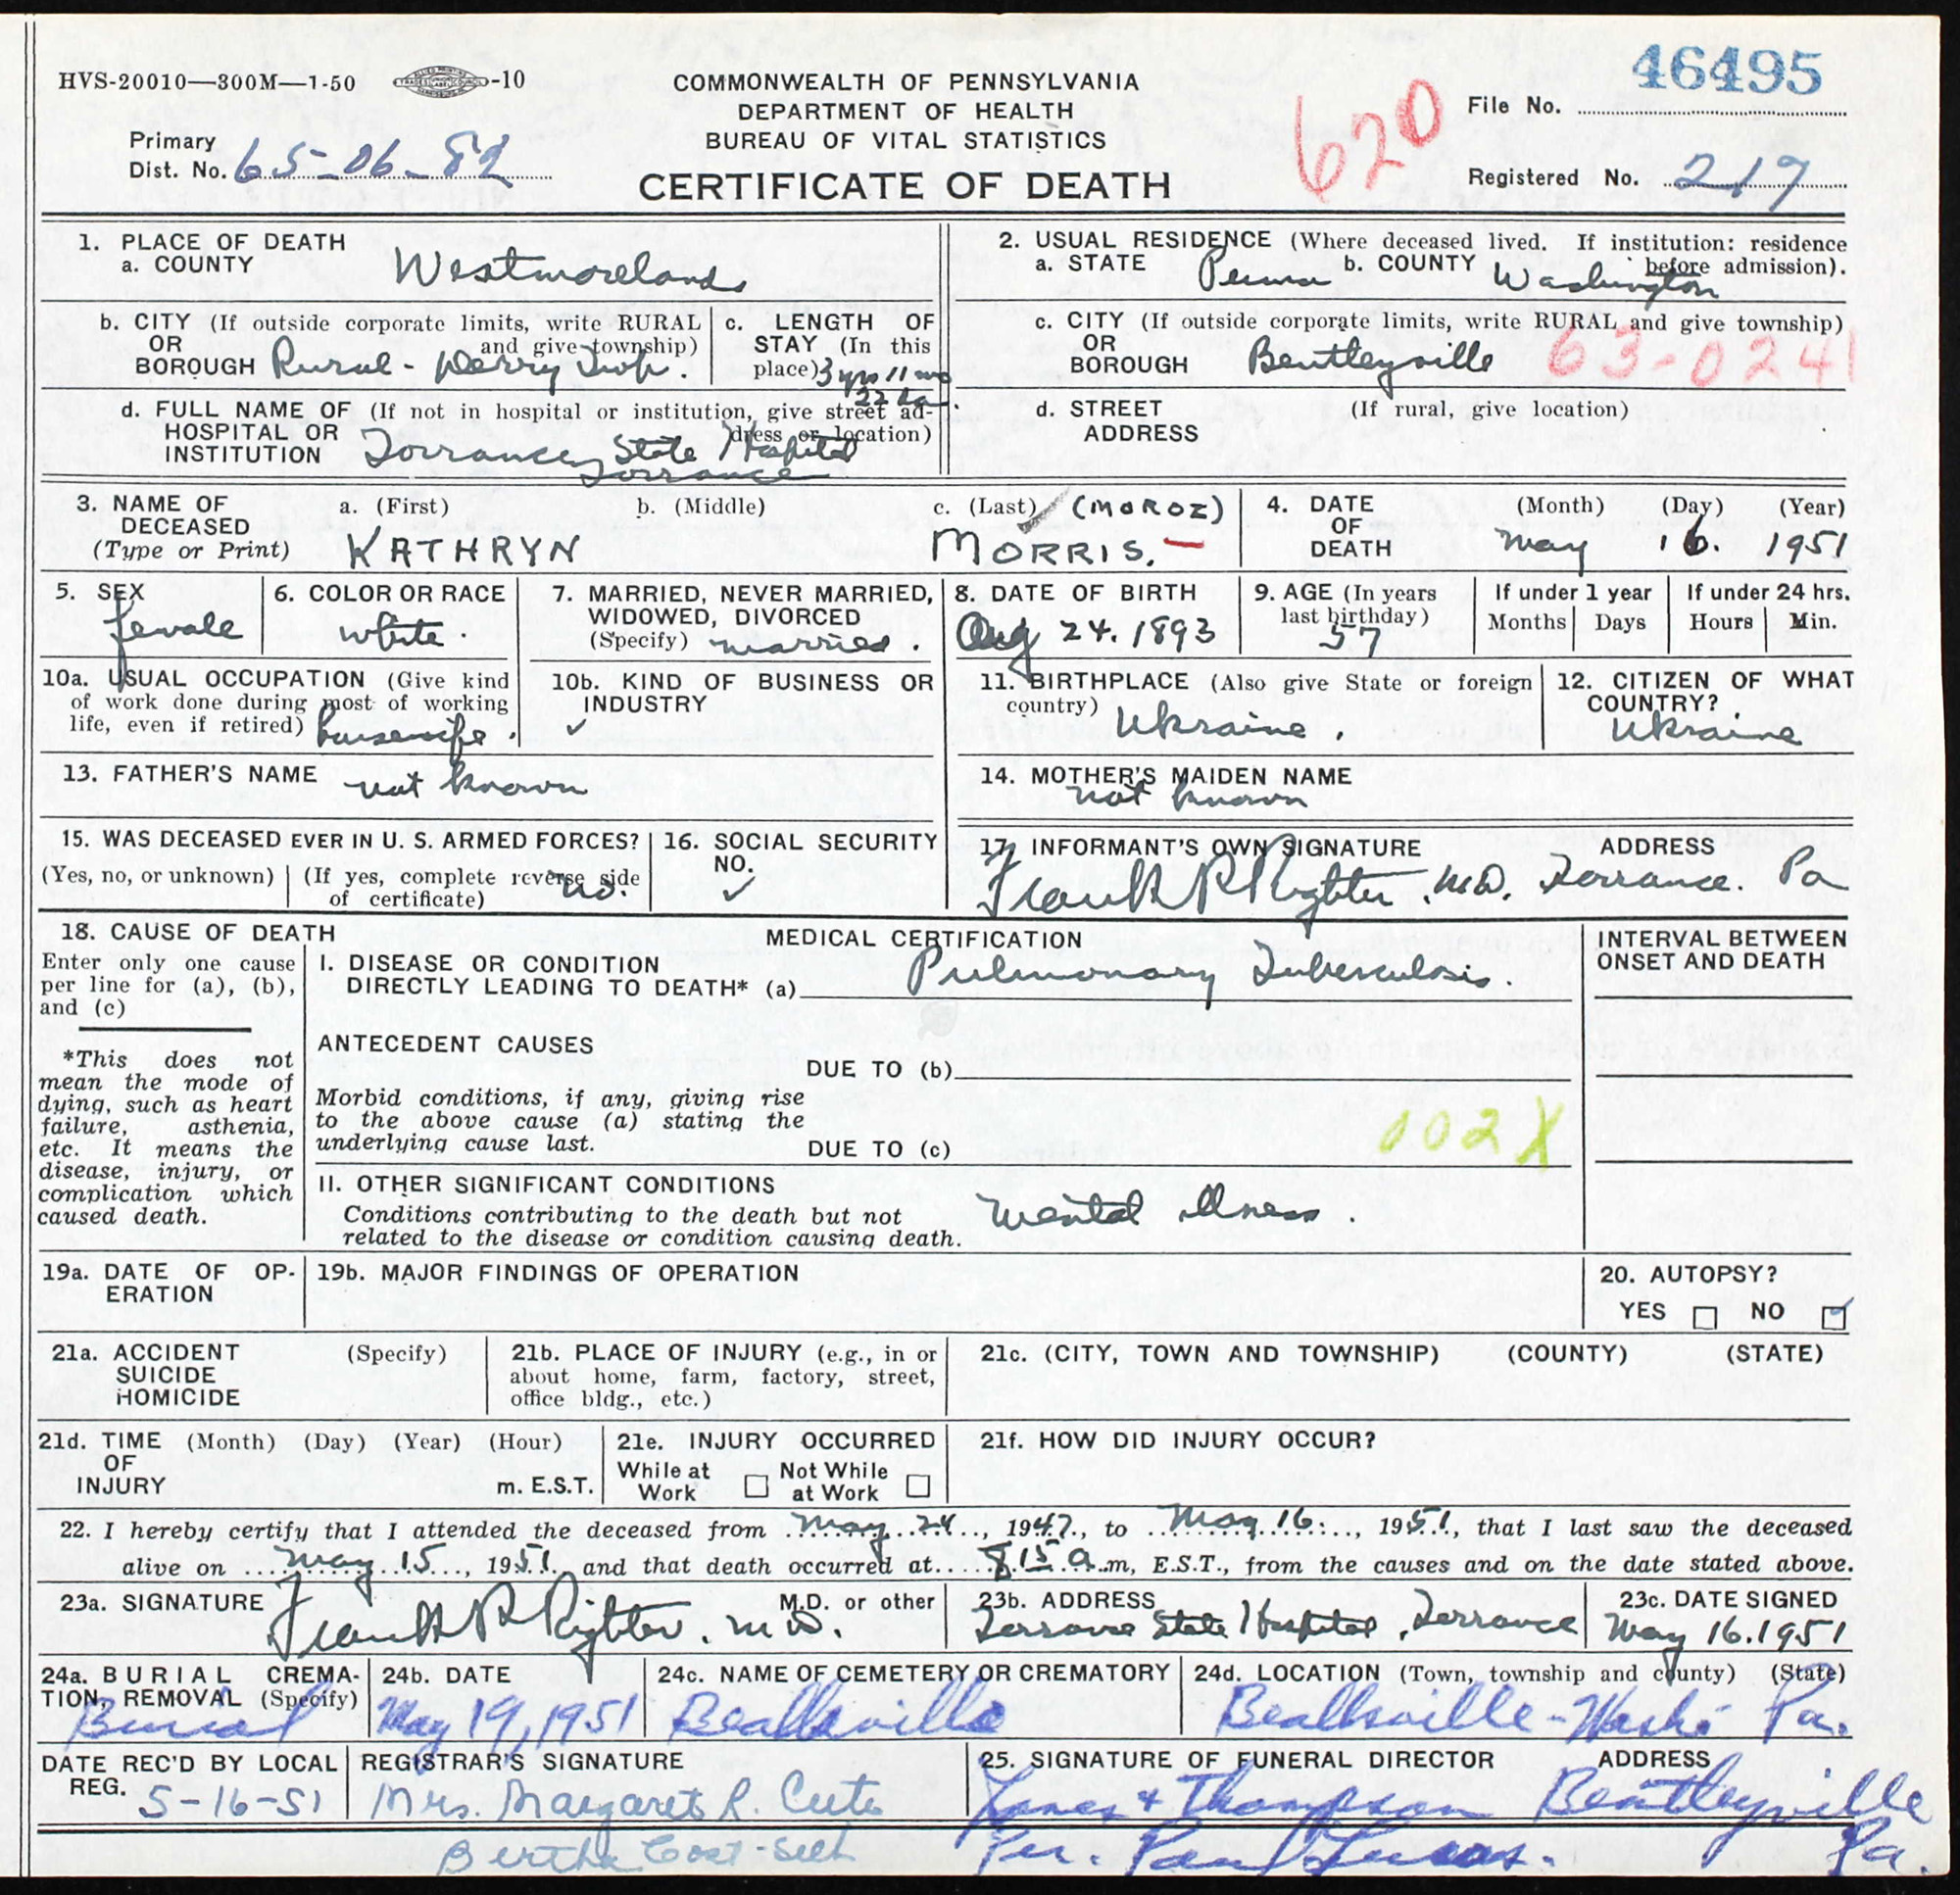 HVS-20010—300M—1-50 -10
COMMONWEALTH OF PENNSYLVANIA
DEPARTMENT OF HEALTH
BUREAU OF VITAL STATISTICS
CERTIFICATE OF DEATH
Primary
Dist. No. 65-06-82
620
46495
File No.
Registered No. 217
1. PLACE OF DEATH
a. COUNTY Westmoreland
b. CITY (If outside corporate limits, write RURAL
OR and give township)
BOROUGH Rural - Derry Twp.
c. LENGTH OF
STAY (In this
place) 3 yrs 11 mo
22 da.
d. FULL NAME OF (If not in hospital or institution, give street ad-
HOSPITAL OR dress or location)
INSTITUTION Torrance State Hospital
Torrance
2. USUAL RESIDENCE (Where deceased lived. If institution: residence
before admission).
a. STATE Penna b. COUNTY Washington
c. CITY (If outside corporate limits, write RURAL and give township)
OR
BOROUGH Bentleyville 63-0241
d. STREET (If rural, give location)
ADDRESS
3. NAME OF
DECEASED
(Type or Print)
a. (First) b. (Middle) c. (Last) (MOROZ)
KATHRYN MORRIS.
4. DATE
OF
DEATH
(Month) (Day) (Year)
May 16. 1951
5. SEX
female
6. COLOR OR RACE
white.
7. MARRIED, NEVER MARRIED,
WIDOWED, DIVORCED
(Specify) married.
8. DATE OF BIRTH
Aug 24. 1893
9. AGE (In years
last birthday)
57
If under 1 year
Months Days
If under 24 hrs.
Hours Min.
10a. USUAL OCCUPATION (Give kind
of work done during most of working
life, even if retired) housewife.
10b. KIND OF BUSINESS OR
INDUSTRY
✓
11. BIRTHPLACE (Also give State or foreign
country) Ukraine.
12. CITIZEN OF WHAT
COUNTRY?
Ukraine
13. FATHER'S NAME not known
14. MOTHER'S MAIDEN NAME
not known
15. WAS DECEASED EVER IN U. S. ARMED FORCES?
(Yes, no, or unknown) (If yes, complete reverse side
of certificate) no.
16. SOCIAL SECURITY
NO.
✓
17. INFORMANT'S OWN SIGNATURE ADDRESS
Frank R Righter. M.D. Torrance. Pa
18. CAUSE OF DEATH
Enter only one cause
per line for (a), (b),
and (c)
*This does not
mean the mode of
dying, such as heart
failure, asthenia,
etc. It means the
disease, injury, or
complication which
caused death.
MEDICAL CERTIFICATION
I. DISEASE OR CONDITION
DIRECTLY LEADING TO DEATH* (a) Pulmonary Tuberculosis.
ANTECEDENT CAUSES
DUE TO (b)
Morbid conditions, if any, giving rise
to the above cause (a) stating the
underlying cause last.
DUE TO (c)
002X
II. OTHER SIGNIFICANT CONDITIONS
Conditions contributing to the death but not
related to the disease or condition causing death.
Mental illness.
INTERVAL BETWEEN
ONSET AND DEATH
19a. DATE OF OP-
ERATION
19b. MAJOR FINDINGS OF OPERATION
20. AUTOPSY?
YES NO ✓
21a. ACCIDENT (Specify)
SUICIDE
HOMICIDE
21b. PLACE OF INJURY (e.g., in or
about home, farm, factory, street,
office bldg., etc.)
21c. (CITY, TOWN AND TOWNSHIP) (COUNTY) (STATE)
21d. TIME (Month) (Day) (Year) (Hour)
OF
INJURY m. E.S.T.
21e. INJURY OCCURRED
While at Not While
Work at Work
21f. HOW DID INJURY OCCUR?
22. I hereby certify that I attended the deceased from May 24, 1947, to May 16, 1951, that I last saw the deceased
alive on May 15, 1951, and that death occurred at 8 15 a.m, E.S.T., from the causes and on the date stated above.
23a. SIGNATURE M.D. or other
Frank R Righter. M.D.
23b. ADDRESS
Torrance State Hospital, Torrance
23c. DATE SIGNED
May 16. 1951
24a. BURIAL CREMA-
TION, REMOVAL (Specify)
Burial
24b. DATE
May 19, 1951
24c. NAME OF CEMETERY OR CREMATORY
Beallsville
24d. LOCATION (Town, township and county) (State)
Beallsville - Wash. Pa.
DATE REC'D BY LOCAL
REG. 5-16-51
REGISTRAR'S SIGNATURE
Mrs. Margaret R.
Bertha
25. SIGNATURE OF FUNERAL DIRECTOR ADDRESS
& Thompson Bentleyville
Per. Paul Pa.